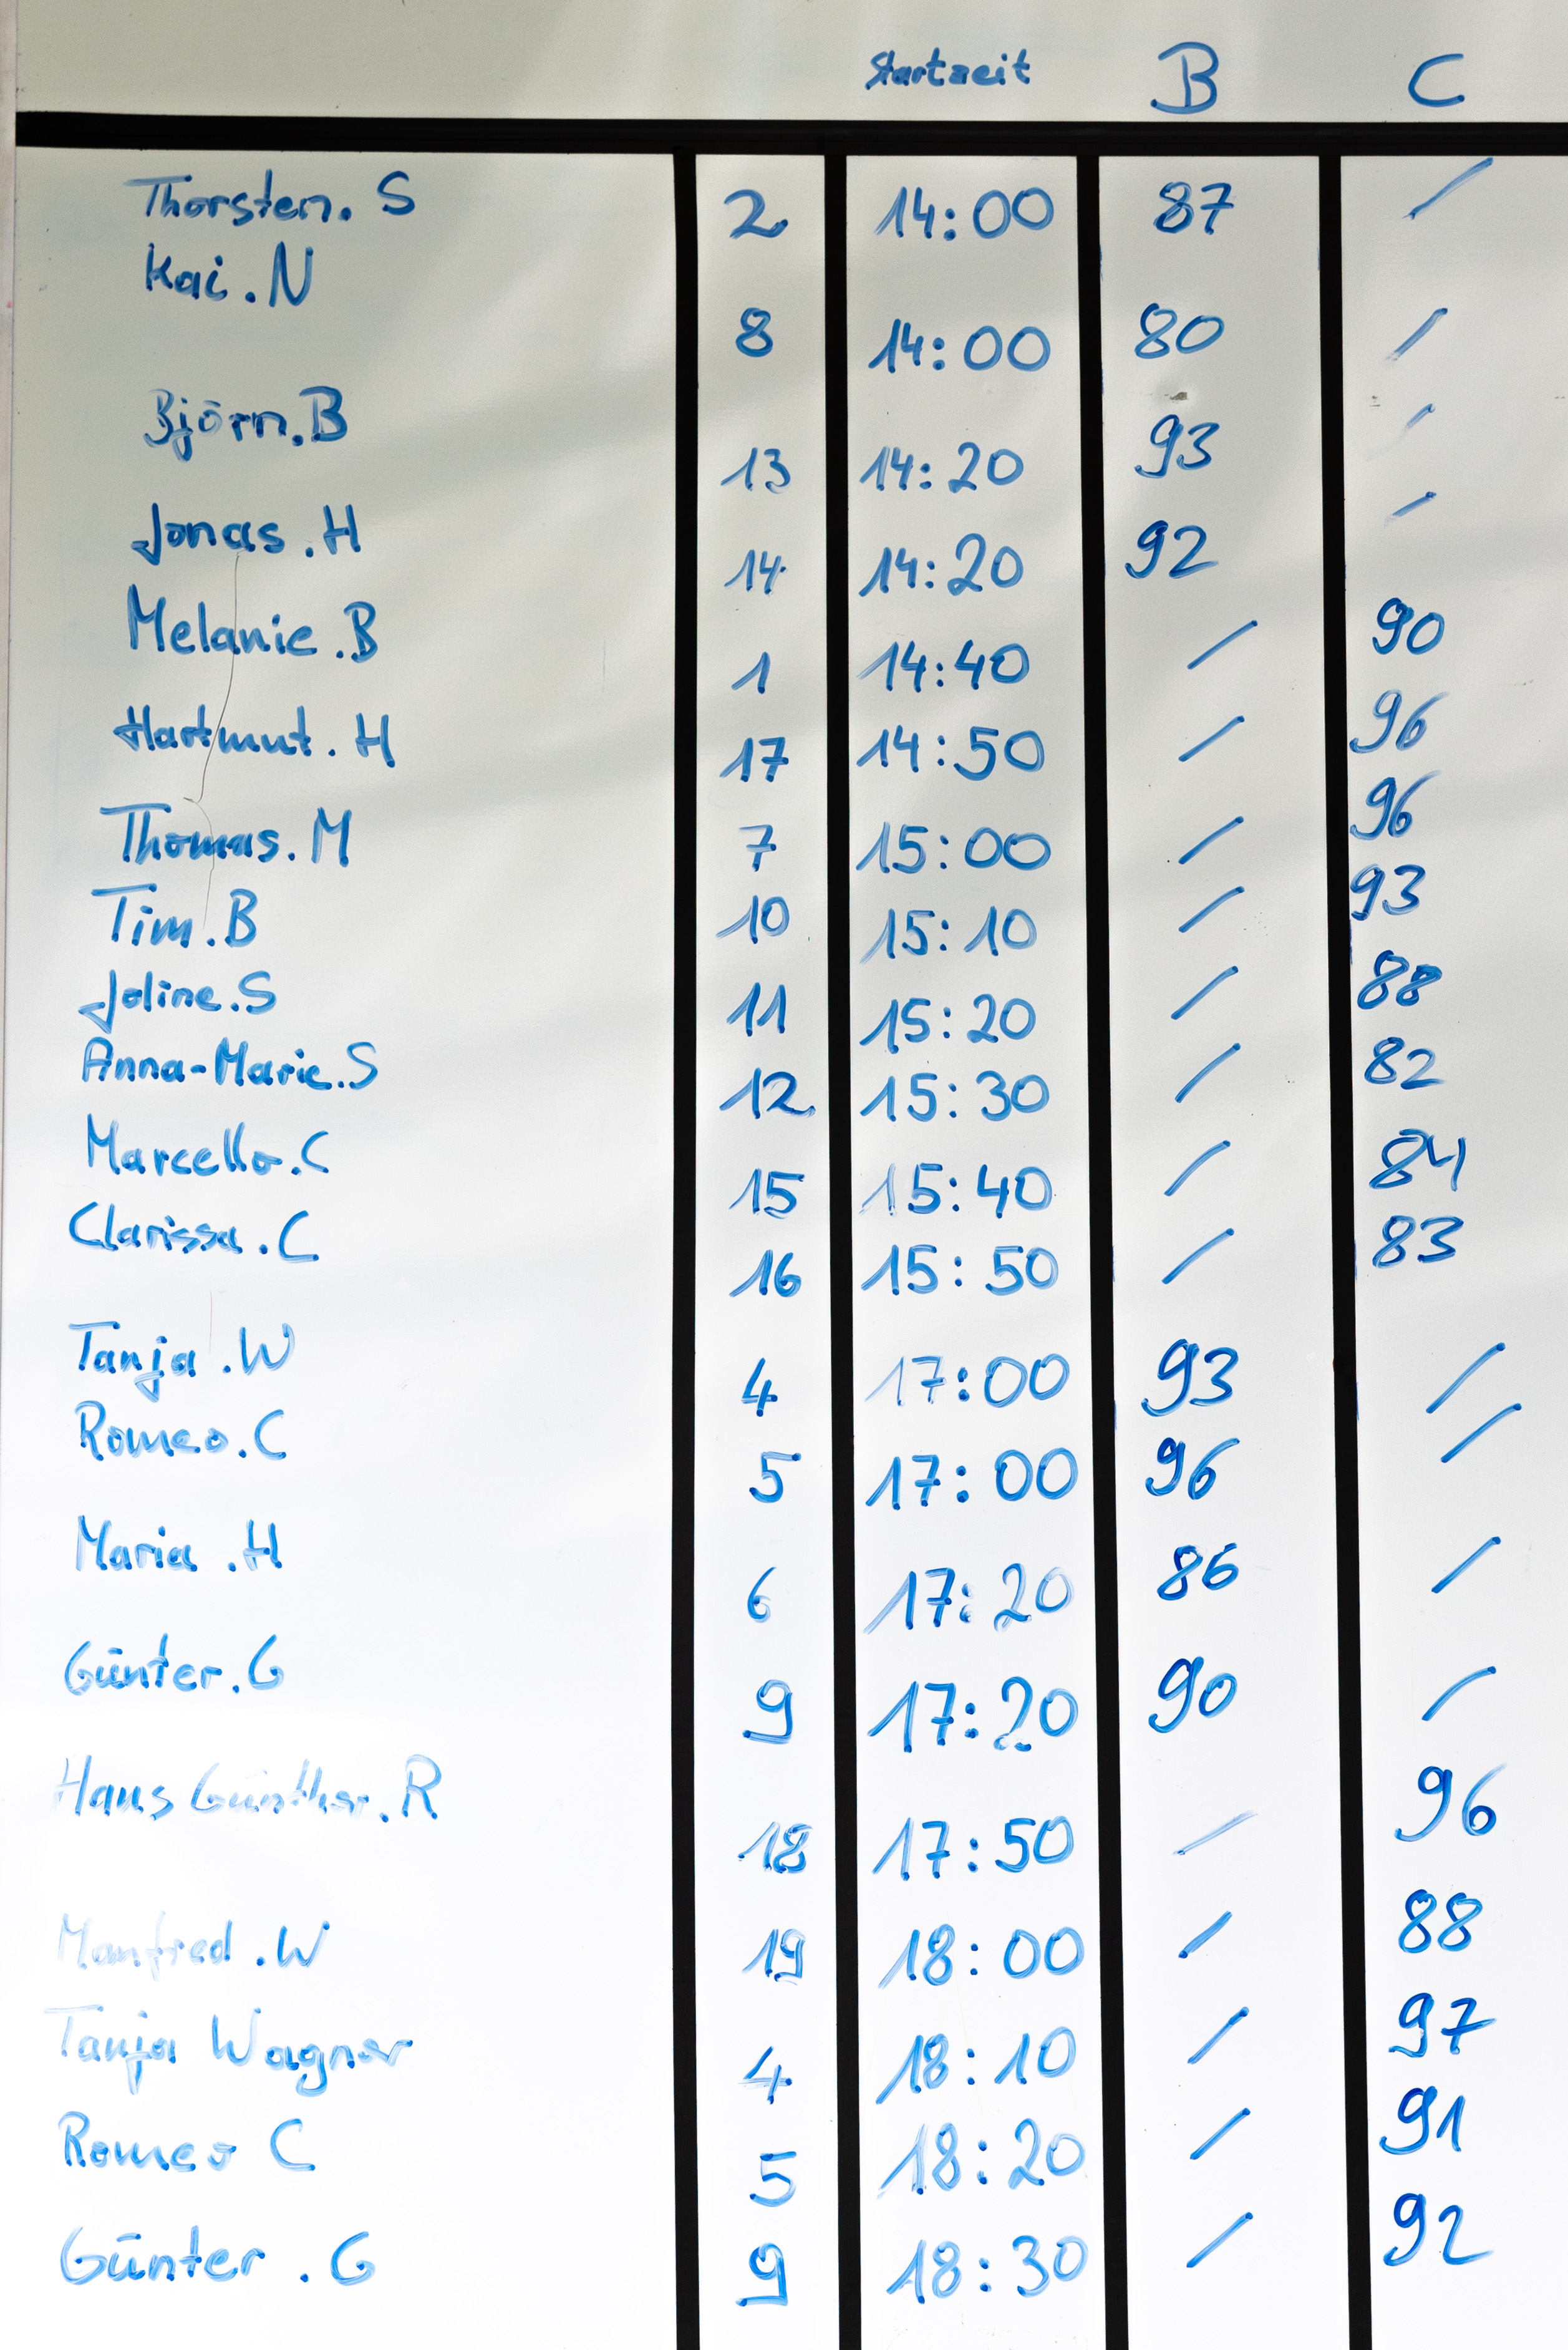 Startzeit B C
Thorsten. S 2 14:00 87 /
Kai. N 8 14:00 80 /
Björn. B 13 14:20 93 /
Jonas. H 14 14:20 92 /
Melanie. B 1 14:40 / 90
Hartmut. H 17 14:50 / 96
Thomas. M 7 15:00 / 96
Tim. B 10 15:10 / 93
Joline. S 11 15:20 / 88
Anna-Marie. S 12 15:30 / 82
Marcello. C 15 15:40 / 84
Clarissa. C 16 15:50 / 83
Tanja. W 4 17:00 93 /
Romeo. C 5 17:00 96 /
Maria. H 6 17:20 86 /
Günter. G 9 17:20 90 /
Hans Günther. R 18 17:50 / 96
Manfred. W 19 18:00 / 88
Tanja Wagner 4 18:10 / 97
Romeo C 5 18:20 / 91
Günter. G 9 18:30 / 92